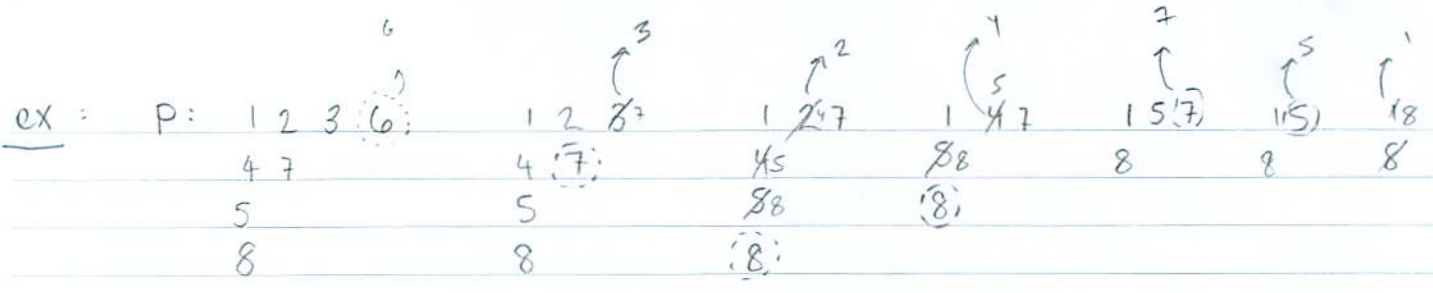 6 3 2 4 7 5 1
ex : P: 1 2 3 6 1 2 3 7 1 2 4 7 1 4 5 7 1 5 7 1 5 1 8
4 7 4 7 4 5 8 8 8 8 8
5 5 5 8 8
8 8 8